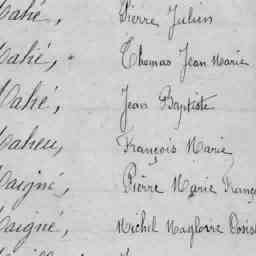 Mahé, Pierre Julien
Mahé, Thomas Jean Marie
Mahé, Jean Baptiste
Maheu, François Marie
Maigné, Pierre Marie Franç
Maigné, Michel Magloire